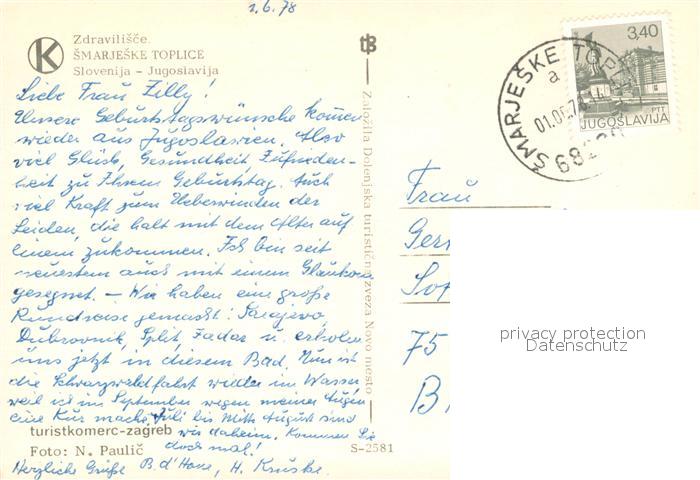 1.6.78
K
Zdravilišče
ŠMARJEŠKE TOPLICE
Slovenija - Jugoslavija
tB
Liebe Frau Zilly!
Unsere Geburtstagswünsche kommen
wieder aus Jugoslawien. Also
viel Glück, Gesundheit, Zufrieden-
heit zu Ihrem Geburtstag. Auch
viel Kraft zum Ueberwinden der
Leiden, die halt mit dem Alter auf
einem zukommen. Ich bin seit
neuestem auch mit einem Glaukom
gesegnet. — Wir haben eine große
Rundreise gemacht: Sarajevo,
Dubrovnik, Split, Zadar u. erholen
uns jetzt in diesem Bad. Nun ist
die Schwarzwaldfahrt wieder im Wasser,
weil ich im September wegen meiner Augen
eine Kur mache. Juli bis Mitte August sind
wir daheim. Kommen Sie
doch mal!
Herzliche Grüße B. d'Hone, H. Kruske.
turistkomerc-zagreb
Foto: N. Paulič
S-2581
Založila Dolenjska turistična zveza Novo mesto
3,40
PTT
JUGOSLAVIJA
ŠMARJEŠKE TOPL
a
01.06.78
Frau
Ger
75
B
privacy protection
Datenschutz